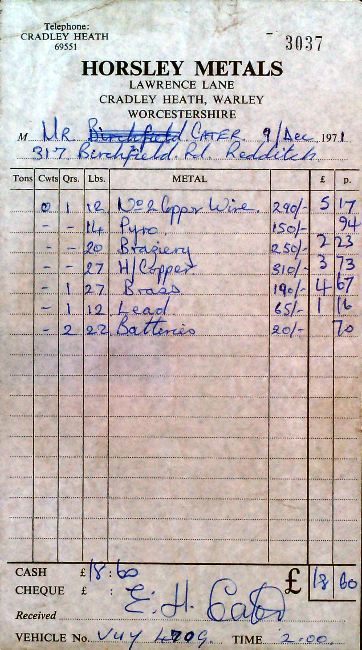 Telephone:
CRADLEY HEATH
69551
3037
HORSLEY METALS
LAWRENCE LANE
CRADLEY HEATH, WARLEY
WORCESTERSHIRE
M MR Birchfield CATER. 9/Dec 1971
317 Birchfield Rd. Redditch
Tons Cwts Qrs. Lbs. METAL £ p.
0 1 12 No 2 Copper Wire. 290/- 5 17
- - 14 Pyro. 150/- 94
- - 20 Braziery 250/- 2 23
- - 27 H/Copper 310/- 3 73
- 1 27 Brass 190/- 4 67
- 1 12 Lead 65/- 1 16
- 2 22 Batteries 20/- 70
CASH £18:60 £ 18 60
CHEQUE £ :
Received E. H. Cater
VEHICLE No. VUY 470G. TIME 2.00.